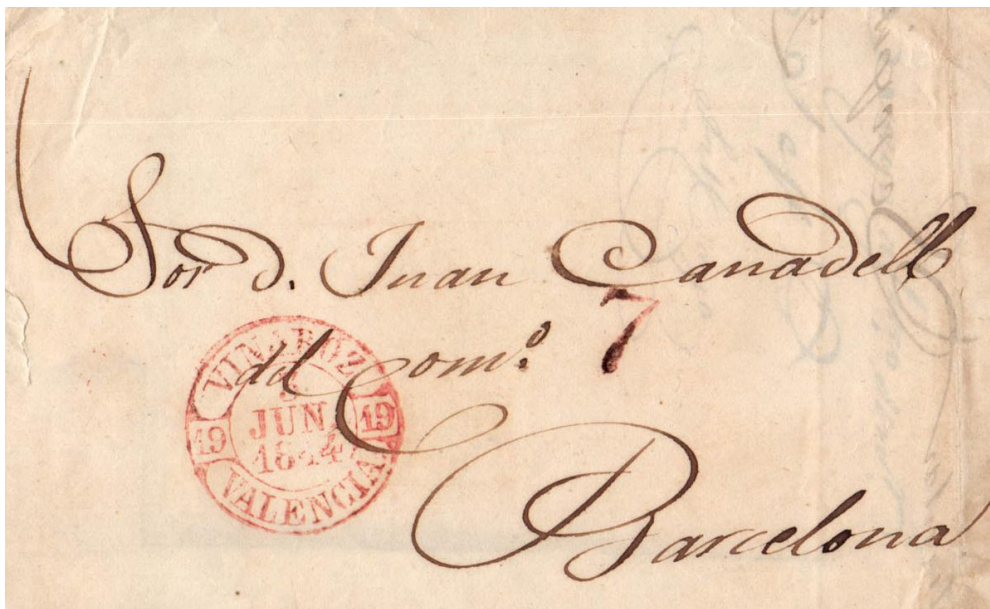 Sor d. Juan Canadell
del Como. 7
Barcelona
VINAROZ
JUN
19 19
VALENCIA